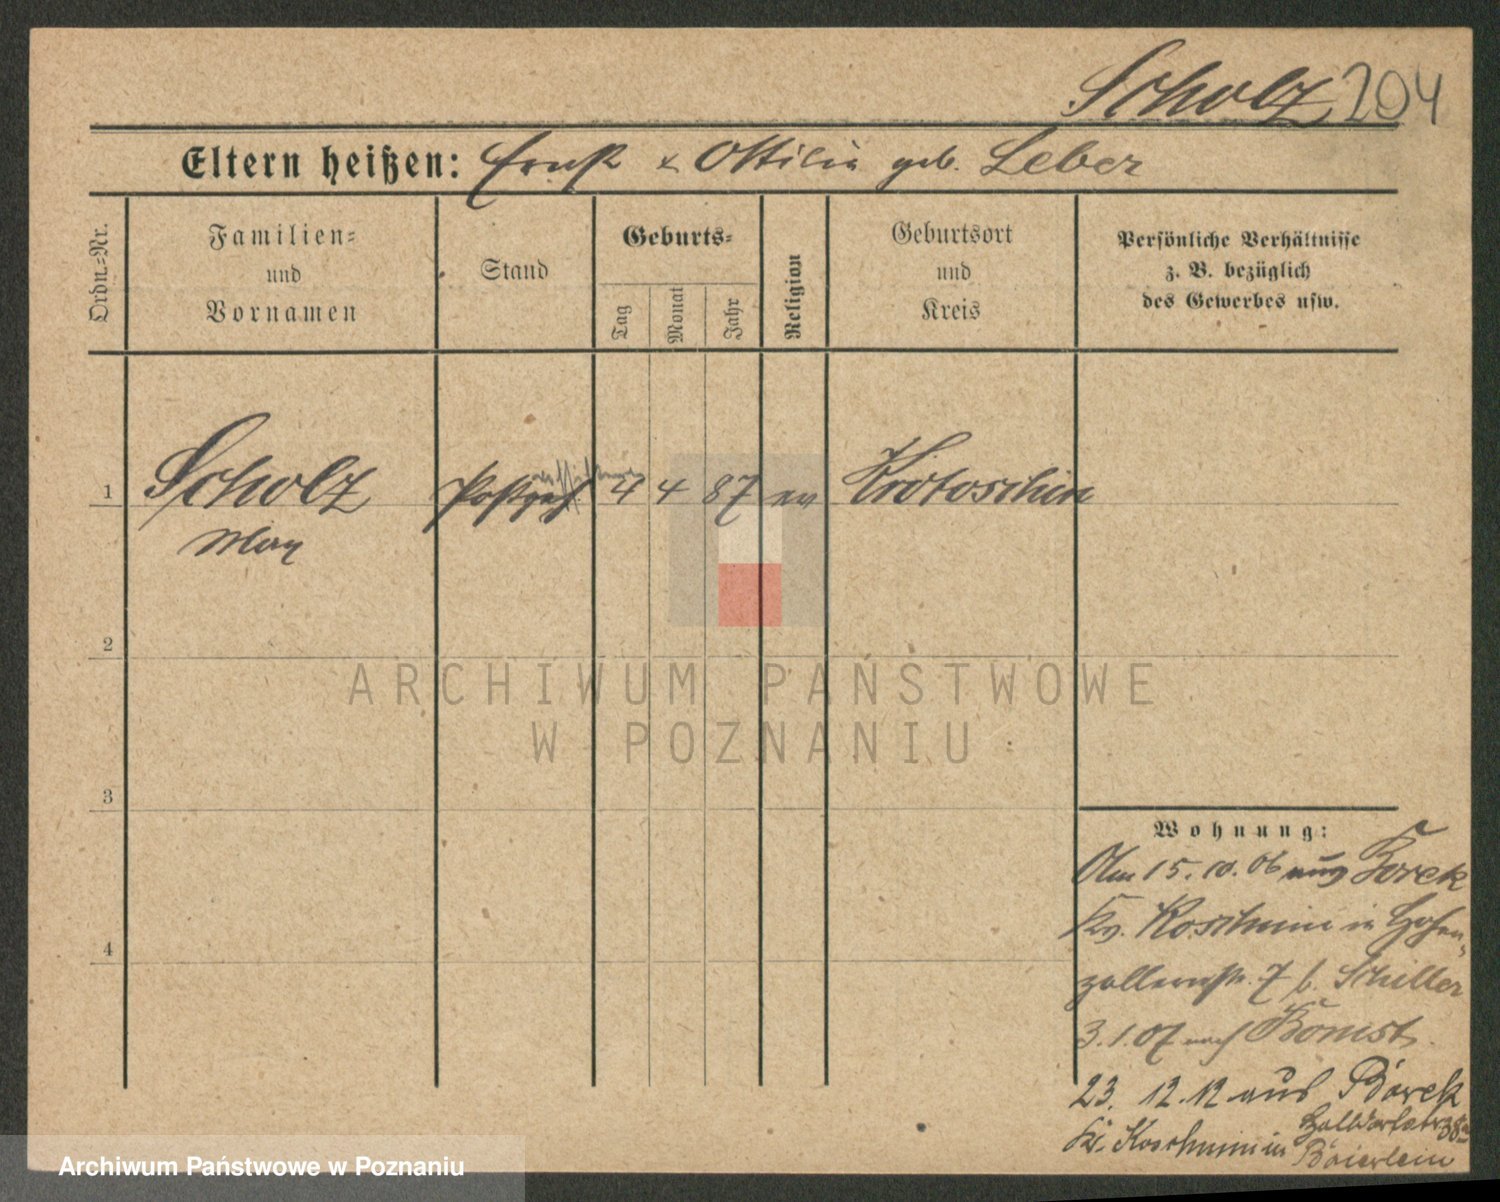 Scholz 204
Eltern heißen: Ernst & Ottilie geb. Leber
Ordn.-Nr.
Familien-
und
Vornamen
Stand
Geburts-
Tag
Monat
Jahr
Religion
Geburtsort
und
Kreis
Persönliche Verhältnisse
z. B. bezüglich
des Gewerbes usw.
1 Scholz Postgeh 4 4 87 ev Krotoschin
Max
2
ARCHIWUM PAŃSTWOWE
W POZNANIU
3
Wohnung:
Am 15.10.06 aus Borek
Kr. Koschmin in Hohen-
zollernstr. 7 b. Schiller
3.1.07 nach Bomst
4
23. 12.12 aus Borek
Kr. Koschmin in
Baierlein
Archiwum Państwowe w Poznaniu